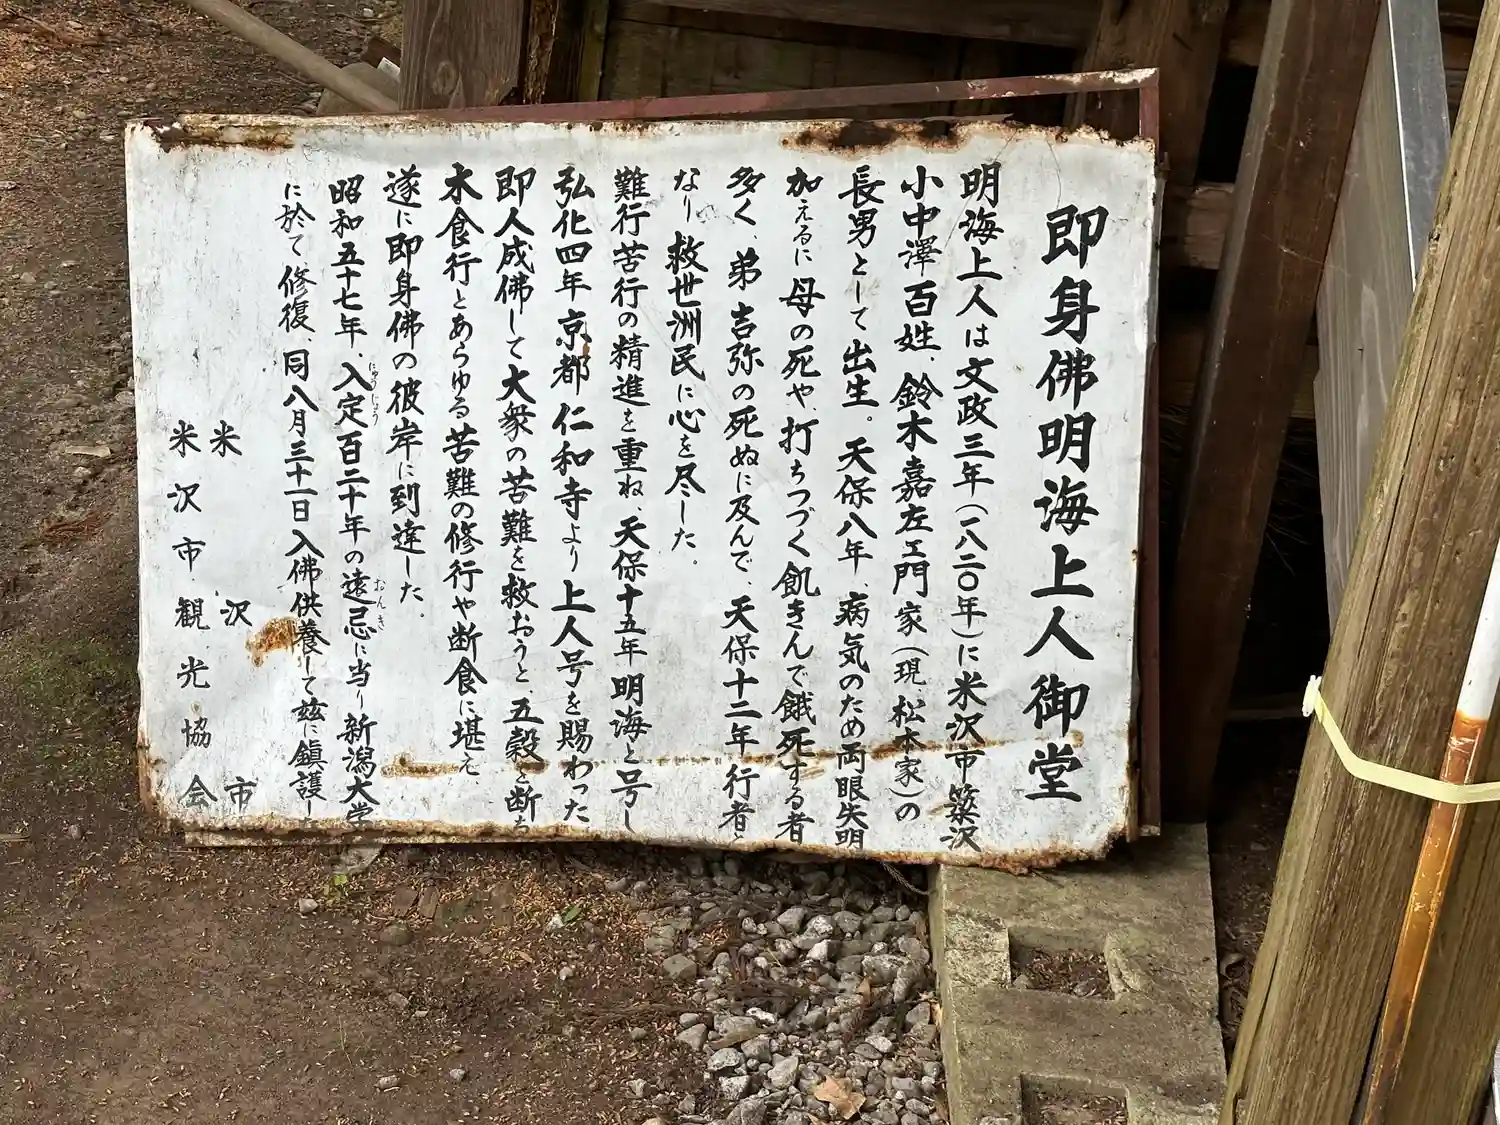 即身佛明海上人御堂
明海上人は文政三年(一八二〇年)に米沢市簗沢
小中澤百姓、鈴木嘉左ェ門家(現、松本家)の
長男として出生。天保八年、病気のため両眼失明
加えるに母の死や、打ちつづく飢きんで餓死する者
多く、弟吉弥の死ぬに及んで、天保十二年行者と
なり救世洲民に心を尽した。
難行苦行の精進を重ね、天保十五年明海と号し
弘化四年京都仁和寺より上人号を賜わった
即人成佛して大衆の苦難を救おうと、五穀を断ち
木食行とあらゆる苦難の修行や断食に堪え
遂に即身佛の彼岸に到達した。
昭和五十七年、入定百二十年の遠忌に当り新潟大学
にゅうじょう
おんき
に於て修復、同八月三十一日入佛供養して玆に鎮護し
米沢市
米沢市観光協会